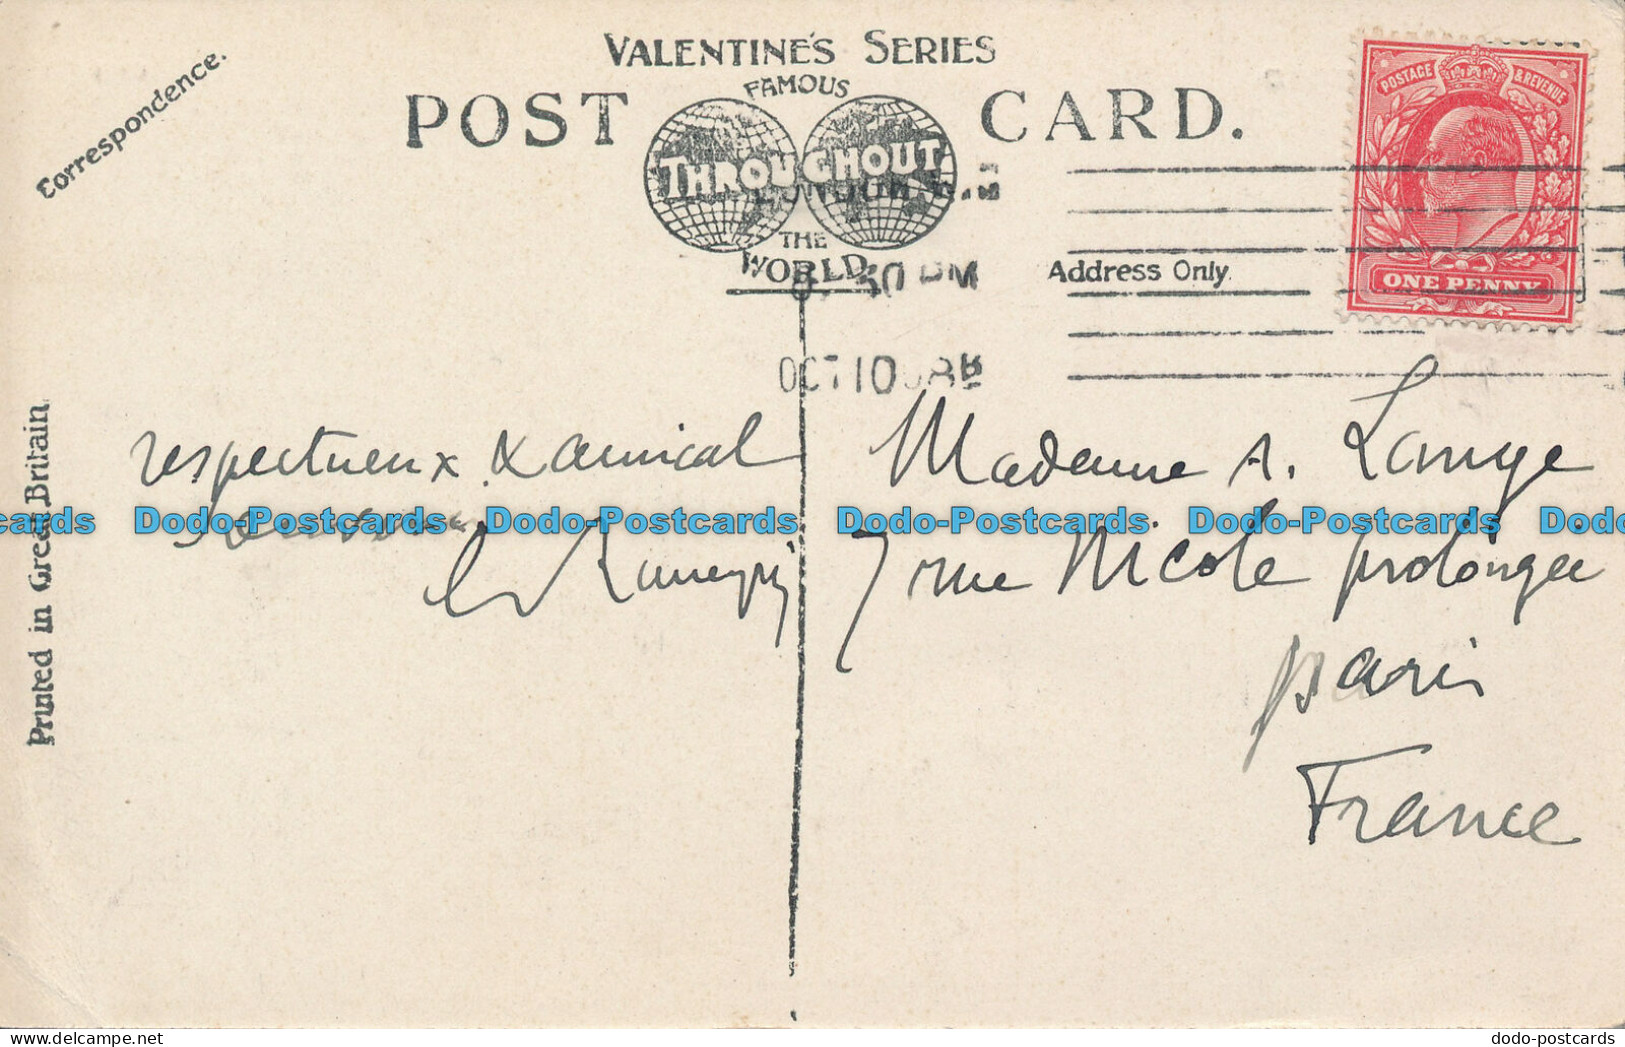 Correspondence.
VALENTINE'S SERIES
POST CARD.
FAMOUS
THROUGHOUT
THE
WORLD
30 PM
OCT 10 08
Address Only.
POSTAGE & REVENUE
ONE PENNY
Printed in Great Britain
respectueux & amical
souvenir
Madame A. Lange
7 rue Nicole prolongée
Paris
France
Dodo-Postcards Dodo-Postcards Dodo-Postcards Dodo-Postcards
dodo-postcards